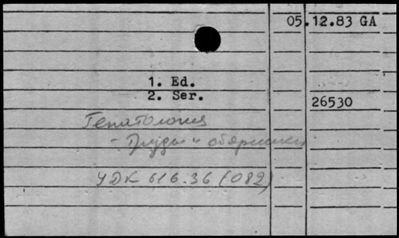 05.12.83 GA
1. Ed.
2. Ser.
26530
Гепатология
- Труды и сборники
УДК 616.36 (082)